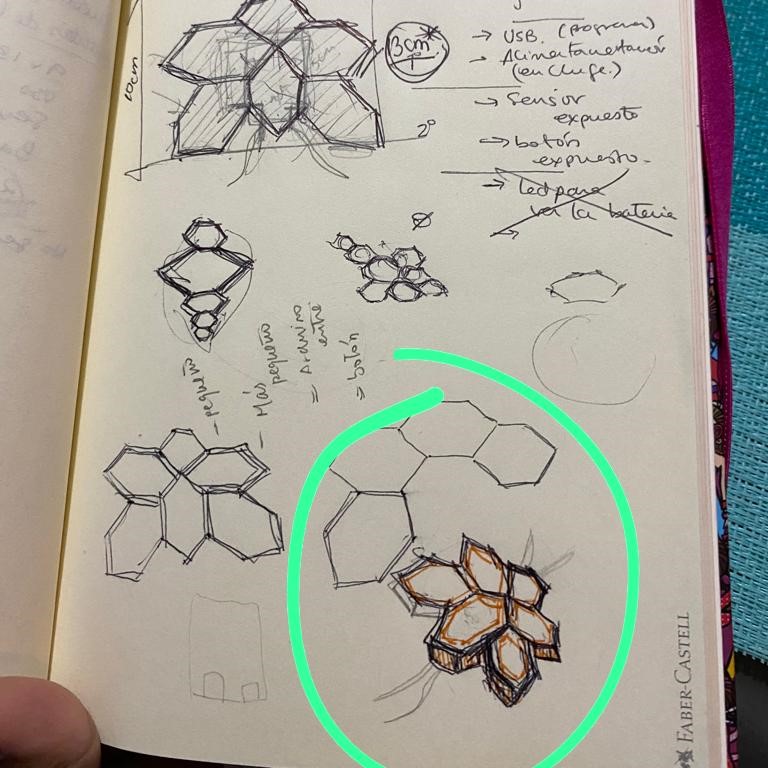 10cm
3cm*
→ USB. (programar)
→ Alimentamentación
(enchufe.)
→ Sensor
expuesto
2º
→ botón
expuesto.
→ led para
ver la batería
→
- pequeño
- Más
pequeño
= Arduino
entre
= botón
FABER-CASTELL